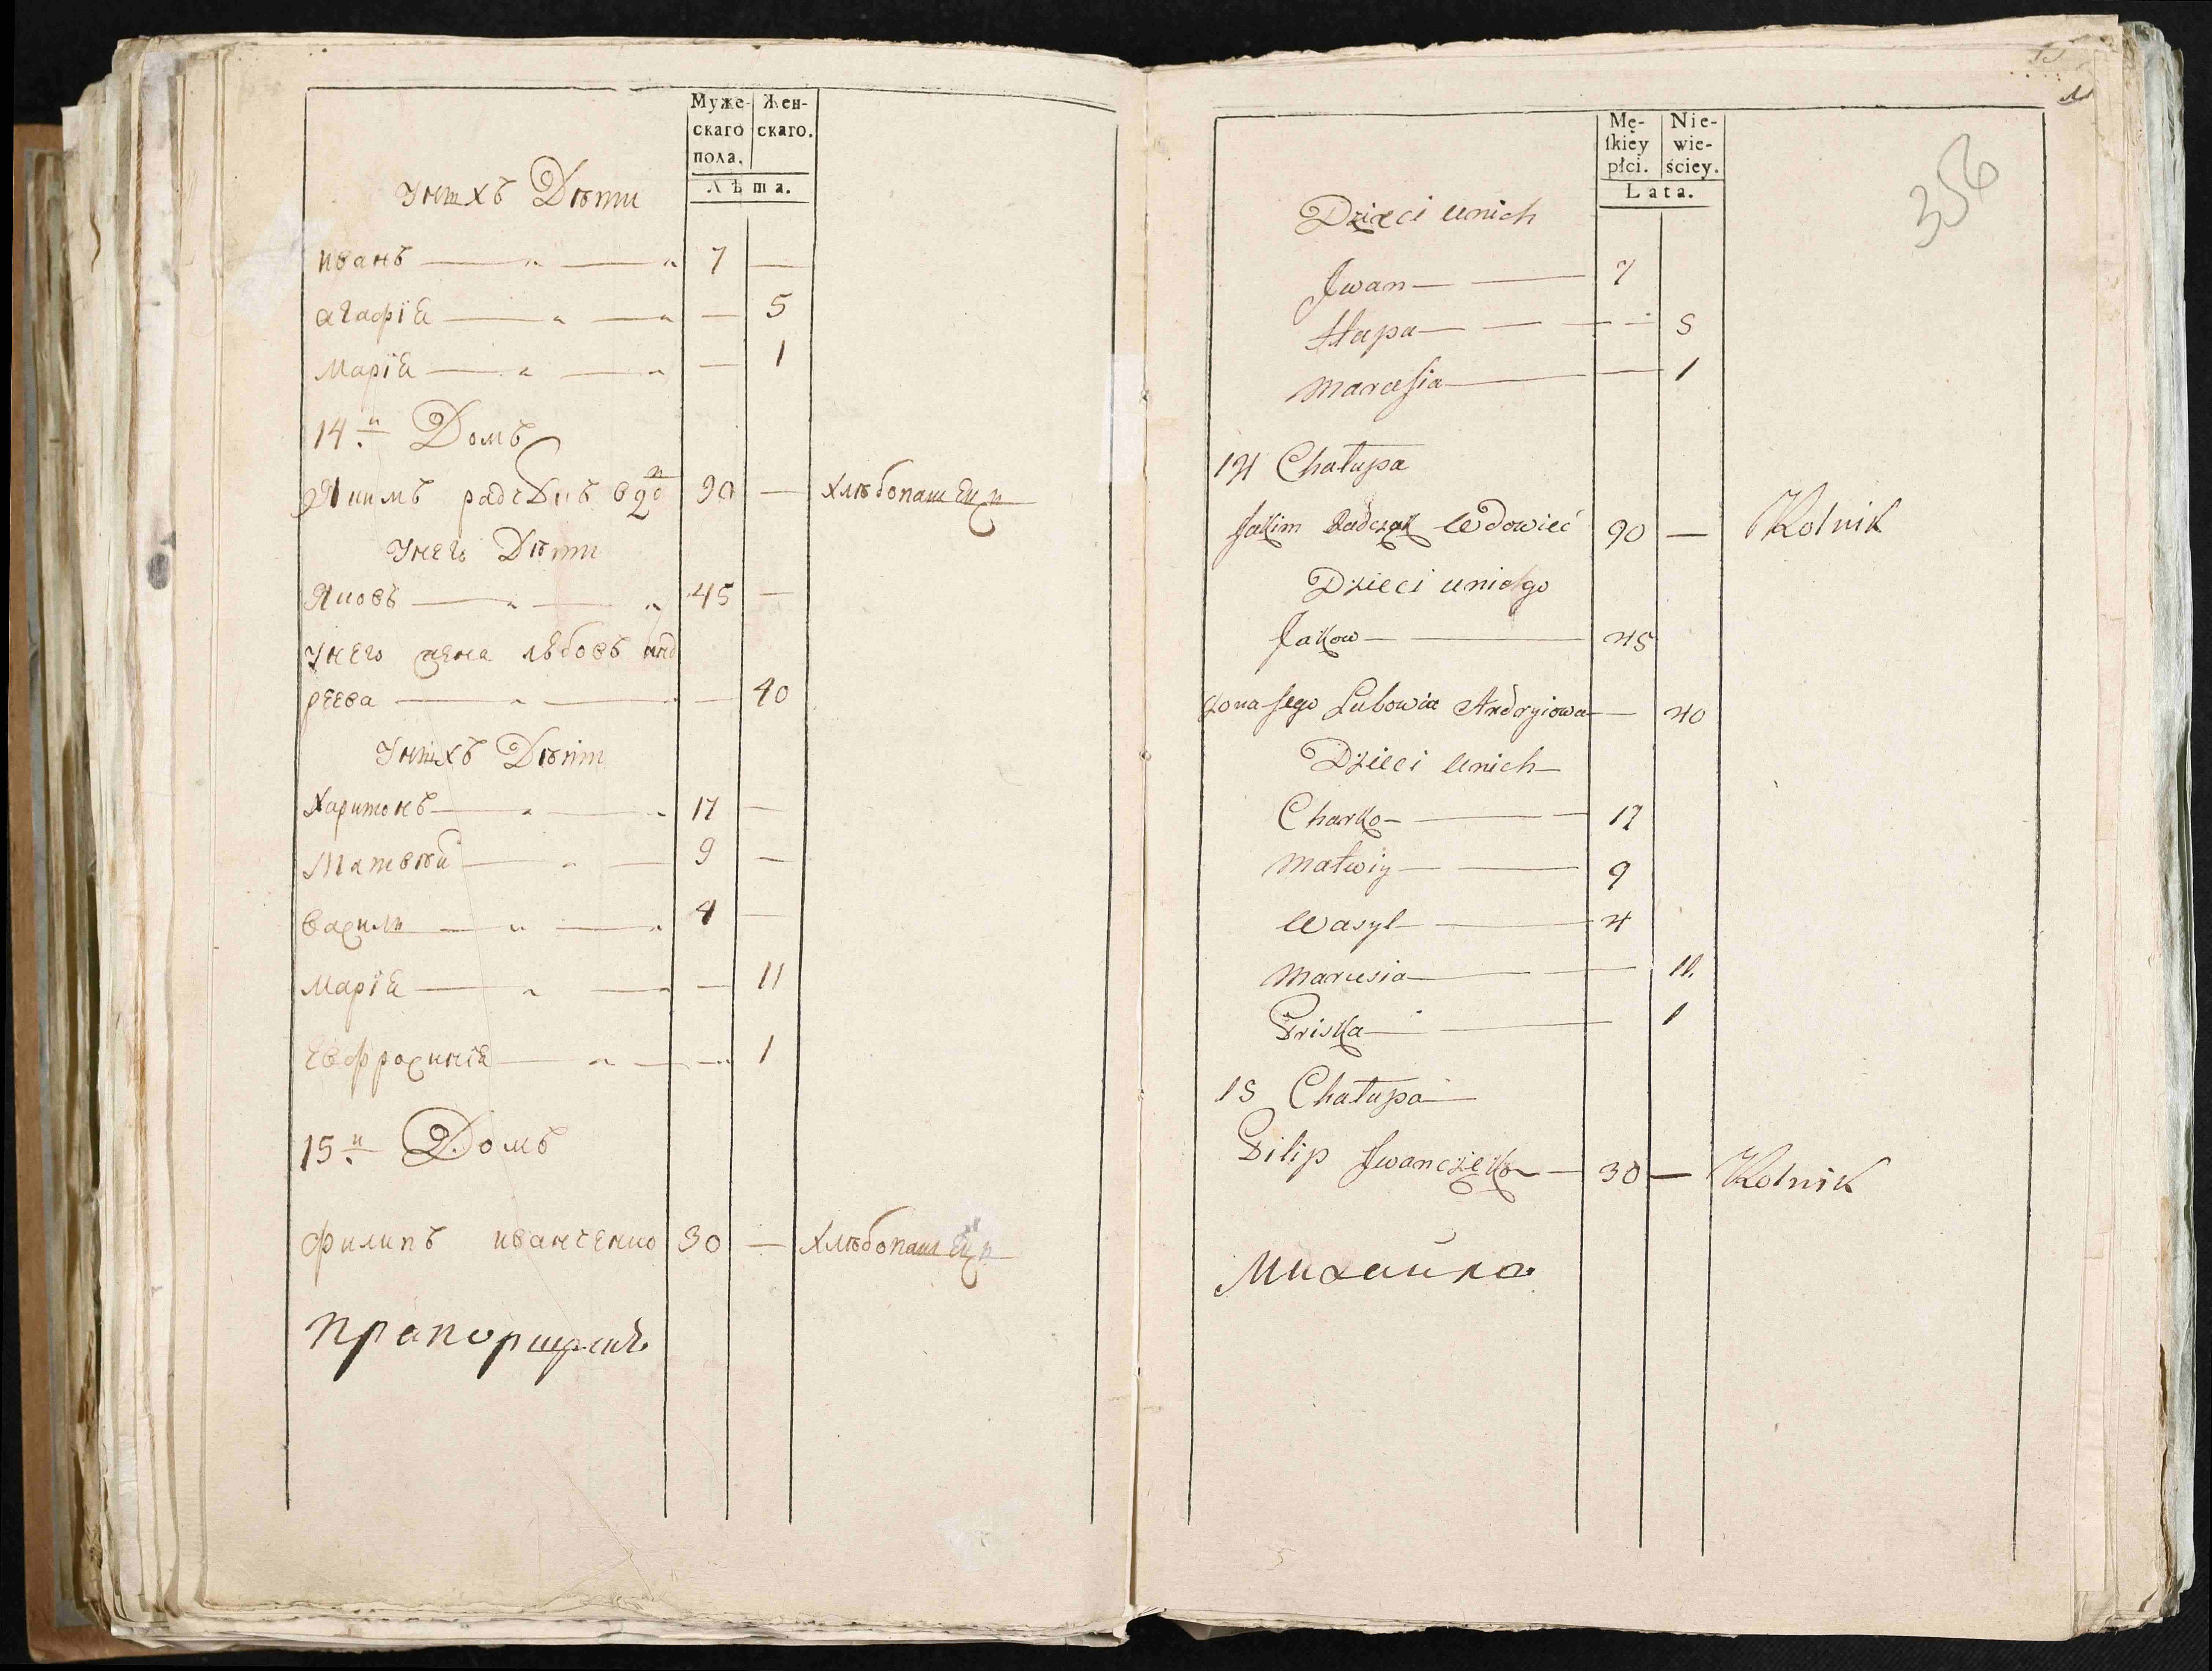 Муже- Жен-
скаго скаго.
пола.
Лѣта.
Унихъ Дѣти
иванъ — „ — „ 7 —
агафїя — „ — „ — 5
Марїя — „ — „ — 1
14й Домъ
Якимъ радчукъ 90 — хлѣбопашецъ
Унего Дѣти
Яковъ — „ — „ 45 —
Унего жена любовъ анд
реева — „ — — 40
Унихъ Дѣти
Харитонъ — „ — „ 17 —
Матвѣй — „ — 9 —
василь — „ — „ 4 —
Марїя — „ — „ — 11
Евфросинїя — „ — — 1
15й Домъ
филипъ иванченко 30 — хлѣбопашецъ
прапорщикъ
Mę- Nie-
ſkiey wie-
płci. ściey.
Lata.
356
Dzieci unich
Jwan — — 7
Hapa — — — — 5
Marusia — — 1
14 Chałupa
Jakim Radczuk Wdowieć 90 — Rolnik
Dzieci uniego
Jakow — — 45
Zona Jego Lubowia Andryiowa — 40
Dzieci Unich —
Charko — — 17
Matwiy — — 9
Wasyl — — 4
Marusia — — 11.
Priska — — 1
15 Chałupa
Filip Jwanczenko — 30 — Rolnik
Михайла